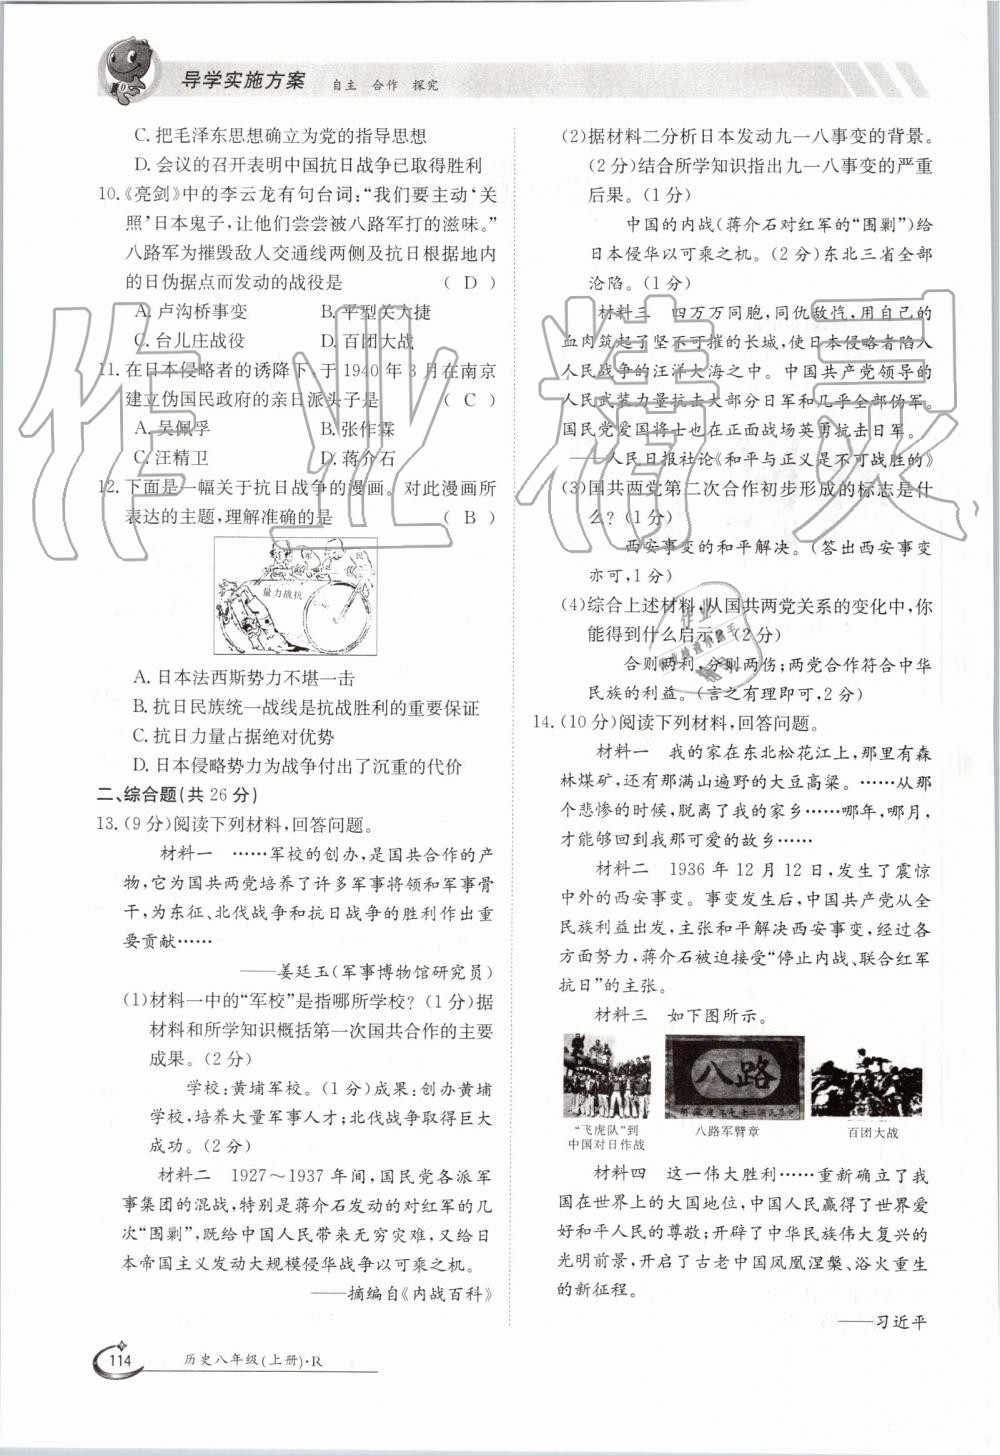 导学实施方案 自主 合作 探究
C. 把毛泽东思想确立为党的指导思想
D. 会议的召开表明中国抗日战争已取得胜利
10.《亮剑》中的李云龙有句台词:“我们要主动‘关
照’日本鬼子,让他们尝尝被八路军打的滋味。”
八路军为摧毁敌人交通线两侧及抗日根据地内
的日伪据点而发动的战役是 ( D )
A. 卢沟桥事变 B. 平型关大捷
C. 台儿庄战役 D. 百团大战
11. 在日本侵略者的诱降下,于 1940 年 3 月在南京
建立伪国民政府的亲日派头子是 ( C )
A. 吴佩孚 B. 张作霖
C. 汪精卫 D. 蒋介石
12. 下面是一幅关于抗日战争的漫画。对此漫画所
表达的主题,理解准确的是 ( B )
军 民
量力战抗
A. 日本法西斯势力不堪一击
B. 抗日民族统一战线是抗战胜利的重要保证
C. 抗日力量占据绝对优势
D. 日本侵略势力为战争付出了沉重的代价
二、综合题(共 26 分)
13. (9 分)阅读下列材料,回答问题。
材料一 ……军校的创办,是国共合作的产
物,它为国共两党培养了许多军事将领和军事骨
干,为东征、北伐战争和抗日战争的胜利作出重
要贡献……
——姜廷玉(军事博物馆研究员)
(1)材料一中的“军校”是指哪所学校?(1 分)据
材料和所学知识概括第一次国共合作的主要
成果。(2 分)
学校:黄埔军校。(1 分)成果:创办黄埔
学校,培养大量军事人才;北伐战争取得巨大
成功。(2 分)
材料二 1927～1937 年间,国民党各派军
事集团的混战,特别是蒋介石发动的对红军的几
次“围剿”,既给中国人民带来无穷灾难,又给日
本帝国主义发动大规模侵华战争以可乘之机。
——摘编自《内战百科》
(2)据材料二分析日本发动九一八事变的背景。
(2 分)结合所学知识指出九一八事变的严重
后果。(1 分)
中国的内战(蒋介石对红军的“围剿”)给
日本侵华以可乘之机。(2 分)东北三省全部
沦陷。(1 分)
材料三 四万万同胞,同仇敌忾,用自己的
血肉筑起了坚不可摧的长城,使日本侵略者陷入
人民战争的汪洋大海之中。中国共产党领导的
人民武装力量抗击大部分日军和几乎全部伪军。
国民党爱国将士也在正面战场英勇抗击日军。
——人民日报社论《和平与正义是不可战胜的》
(3)国共两党第二次合作初步形成的标志是什
么?(1 分)
西安事变的和平解决。(答出西安事变
亦可,1 分)
(4)综合上述材料,从国共两党关系的变化中,你
能得到什么启示?(2 分)
合则两利,分则两伤;两党合作符合中华
民族的利益。(言之有理即可,2 分)
14. (10 分)阅读下列材料,回答问题。
材料一 我的家在东北松花江上,那里有森
林煤矿,还有那满山遍野的大豆高粱。……从那
个悲惨的时候,脱离了我的家乡……哪年,哪月,
才能够回到我那可爱的故乡……
材料二 1936 年 12 月 12 日,发生了震惊
中外的西安事变。事变发生后,中国共产党从全
民族利益出发,主张和平解决西安事变,经过各
方面努力,蒋介石被迫接受“停止内战、联合红军
抗日”的主张。
材料三 如下图所示。
八路
“飞虎队”到
中国对日作战
八路军臂章
百团大战
材料四 这一伟大胜利……重新确立了我
国在世界上的大国地位,中国人民赢得了世界爱
好和平人民的尊敬;开辟了中华民族伟大复兴的
光明前景,开启了古老中国凤凰涅槃、浴火重生
的新征程。
——习近平
114 历史八年级(上册)·R
作业精灵